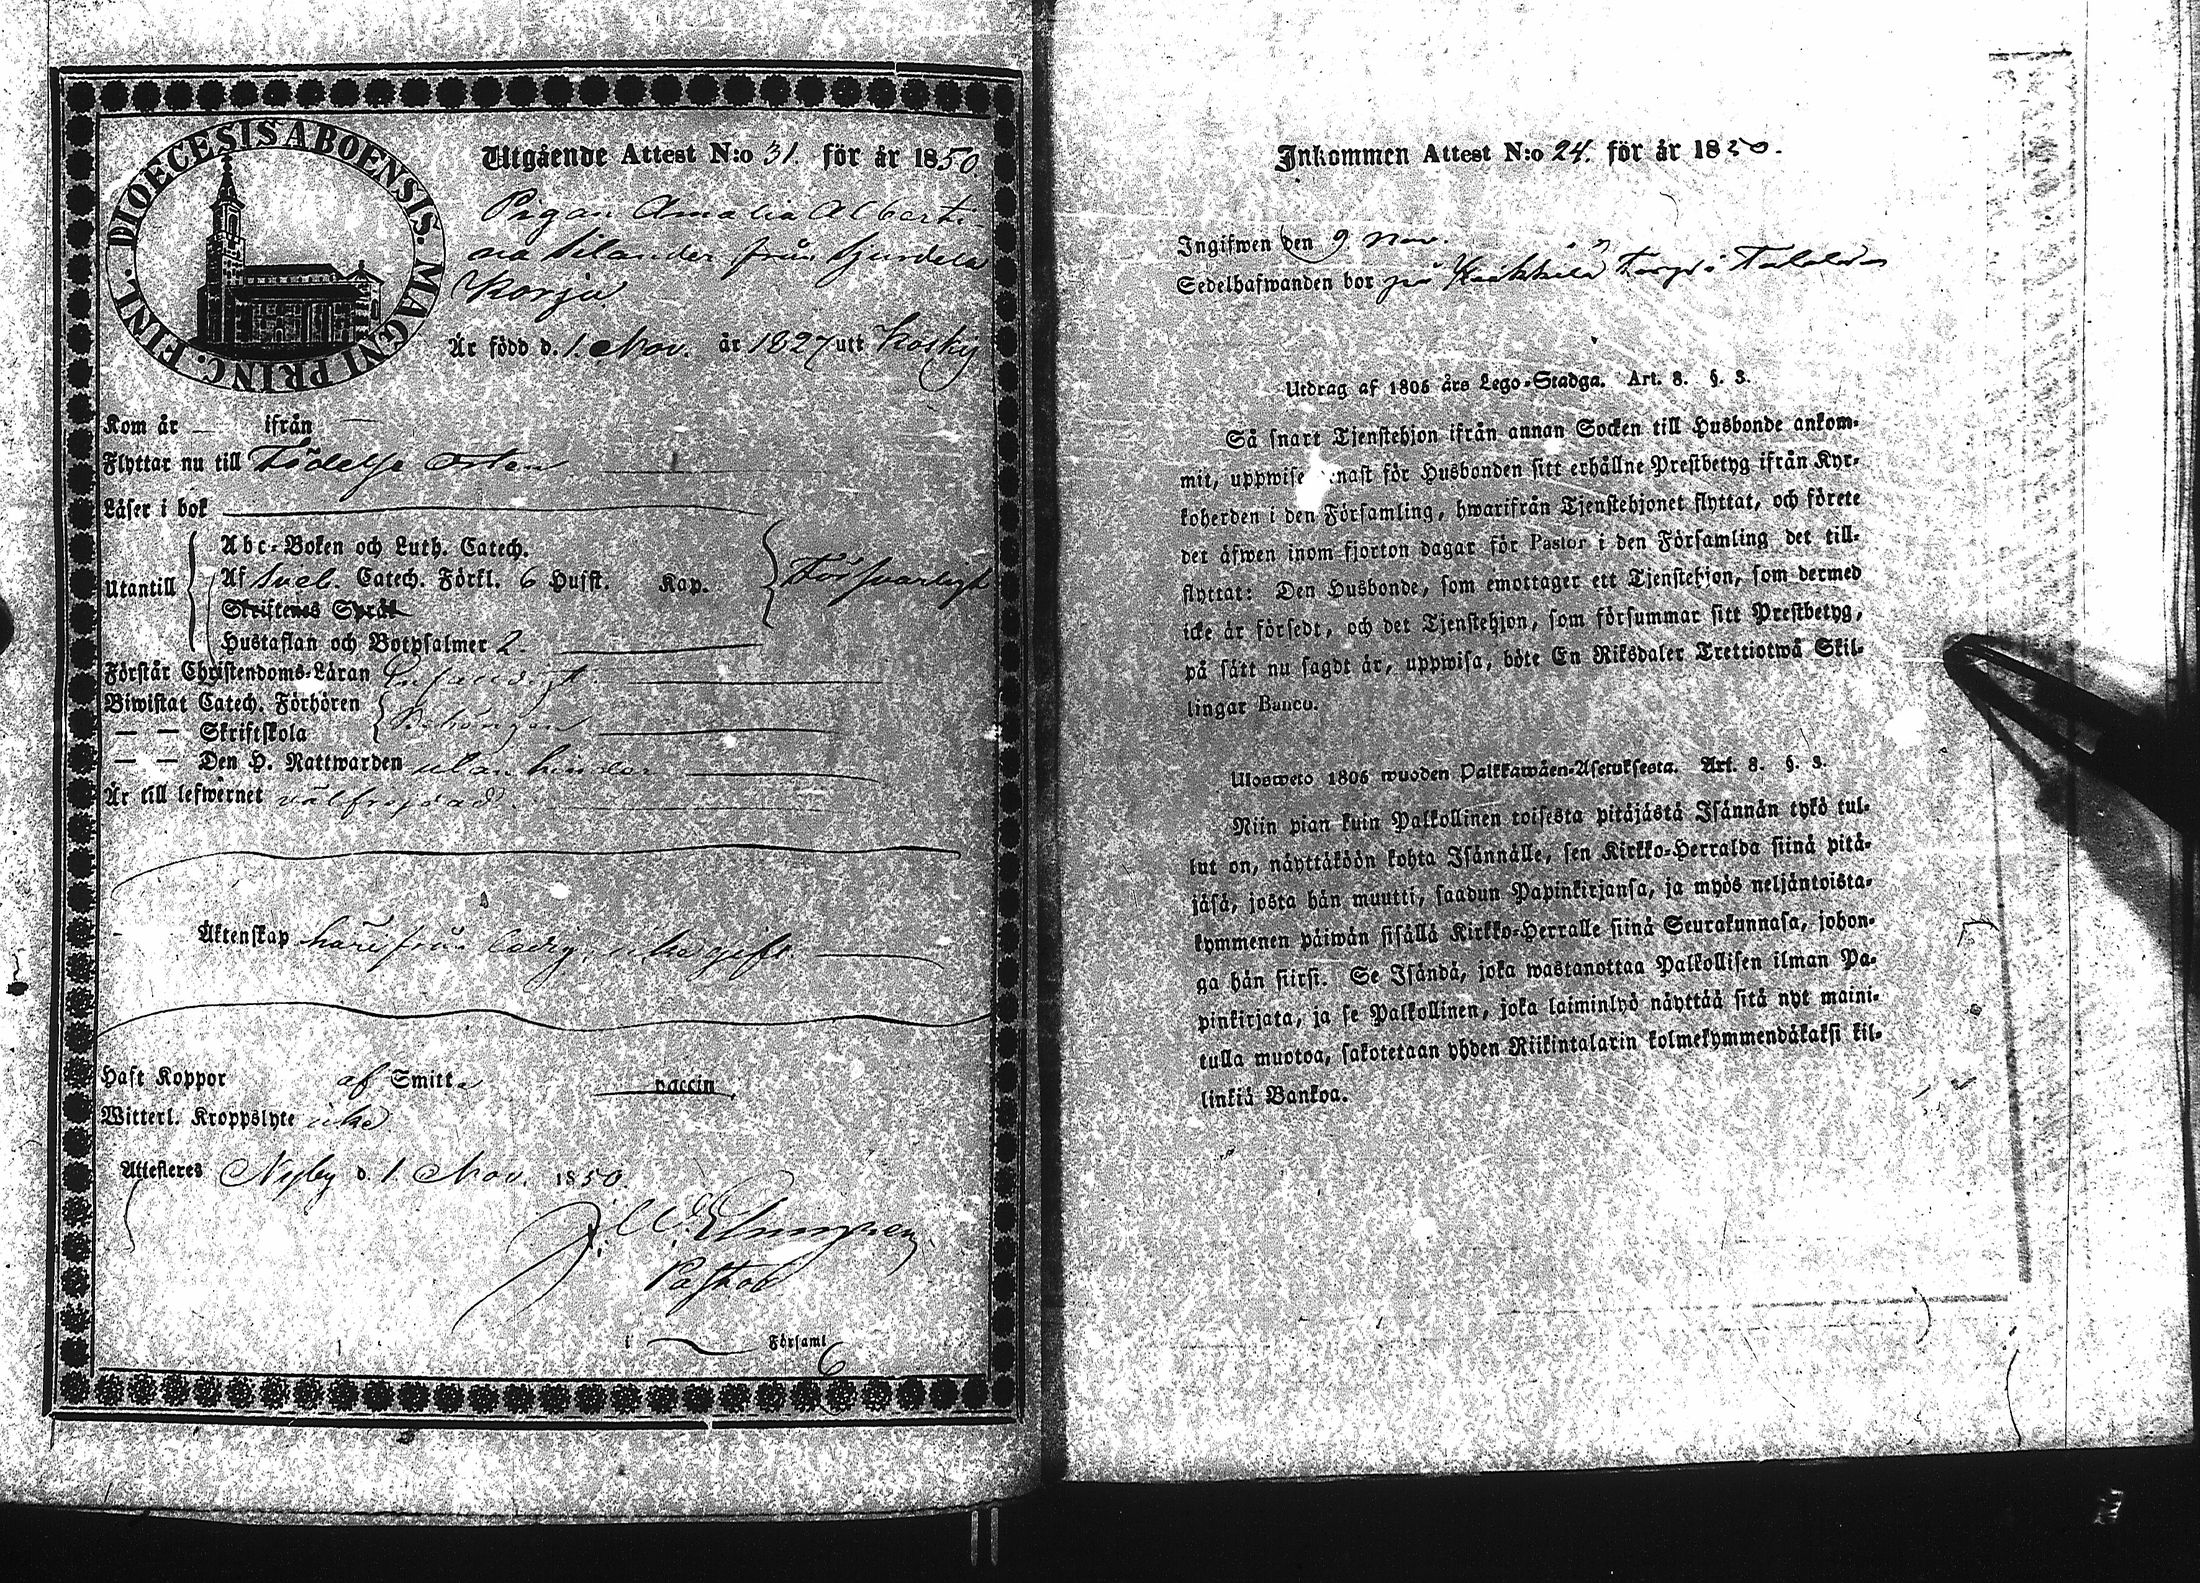 DIOECESIS ABOENSIS. MAGNI PRINC. FINL.
Utgående Attest N:o 31. för år 1850.
Pigan Amalia Alberti-
na Silander från Sjundela
Korju
Är född d. 1. Nov. år 1827 utt Kosky
Kom år — ifrån —
Flyttar nu till Födelse orten
Läser i bok
Utantill
Abc-Boken och Luth. Catech.
Af Sveb. Catech. Förkl. 6 Hufst. Kap. Försvarligt
Skriftenes Språk
Hustaflan och Botpsalmer 2.
Förstår Christendoms-Läran
Biwistat Catech. Förhören
— — Skriftskola
— — Den H. Nattwarden utan hinder
Är till lefwernet välfrejdad.
Äktenskap härifrån ledig, icke gift.
Haft Koppor af Smitta vaccin
Witterl. Kroppslyte icke
Attesteres Nyby d. 1. Nov. 1850.
Pastor
i Församl
6
Inkommen Attest N:o 24. för år 1850.
Ingifwen den 9 Nov.
Sedelhafwanden bor på
Utdrag af 1805 års Lego-Stadga. Art. 8. §. 3.
Så snart Tjenstehjon ifrån annan Socken till Husbonde ankom-
mit, uppwise för Husbonden sitt erhållne Prestbetyg ifrån Kyr-
koherden i den Församling, hwarifrån Tjenstehjonet flyttat, och förete
det äfwen inom fjorton dagar för Pastor i den Församling det till-
flyttat: Den Husbonde, som emottager ett Tjenstehjon, som dermed
icke är försedt, och det Tjenstehjon, som försummar sitt Prestbetyg,
på sätt nu sagdt är, uppwisa, böte En Riksdaler Trettiotwå Skil-
lingar Banco.
Ulosweto 1805 wuoden Palkkawäen-Asetuksesta. Art. 8. §. 3.
Niin pian kuin Palkollinen toisesta pitäjästä Isännän tykö tul-
lut on, näyttäköön kohta Isännälle, sen Kirkko-Herralda siinä pitä-
jäsä, josta hän muutti, saadun Papinkirjansa, ja myös neljäntoista-
kymmenen päiwän sisällä Kirkko-Herralle siinä Seurakunnasa, johon-
ga hän siirsi. Se Isändä, joka wastanottaa Palkollisen ilman Pa-
pinkirjata, ja se Palkollinen, joka laiminlyö näyttää sitä nyt maini-
tulla muotoa, sakotetaan yhden Riikintalarin kolmekymmendäkaksi kil-
linkiä Bankoa.